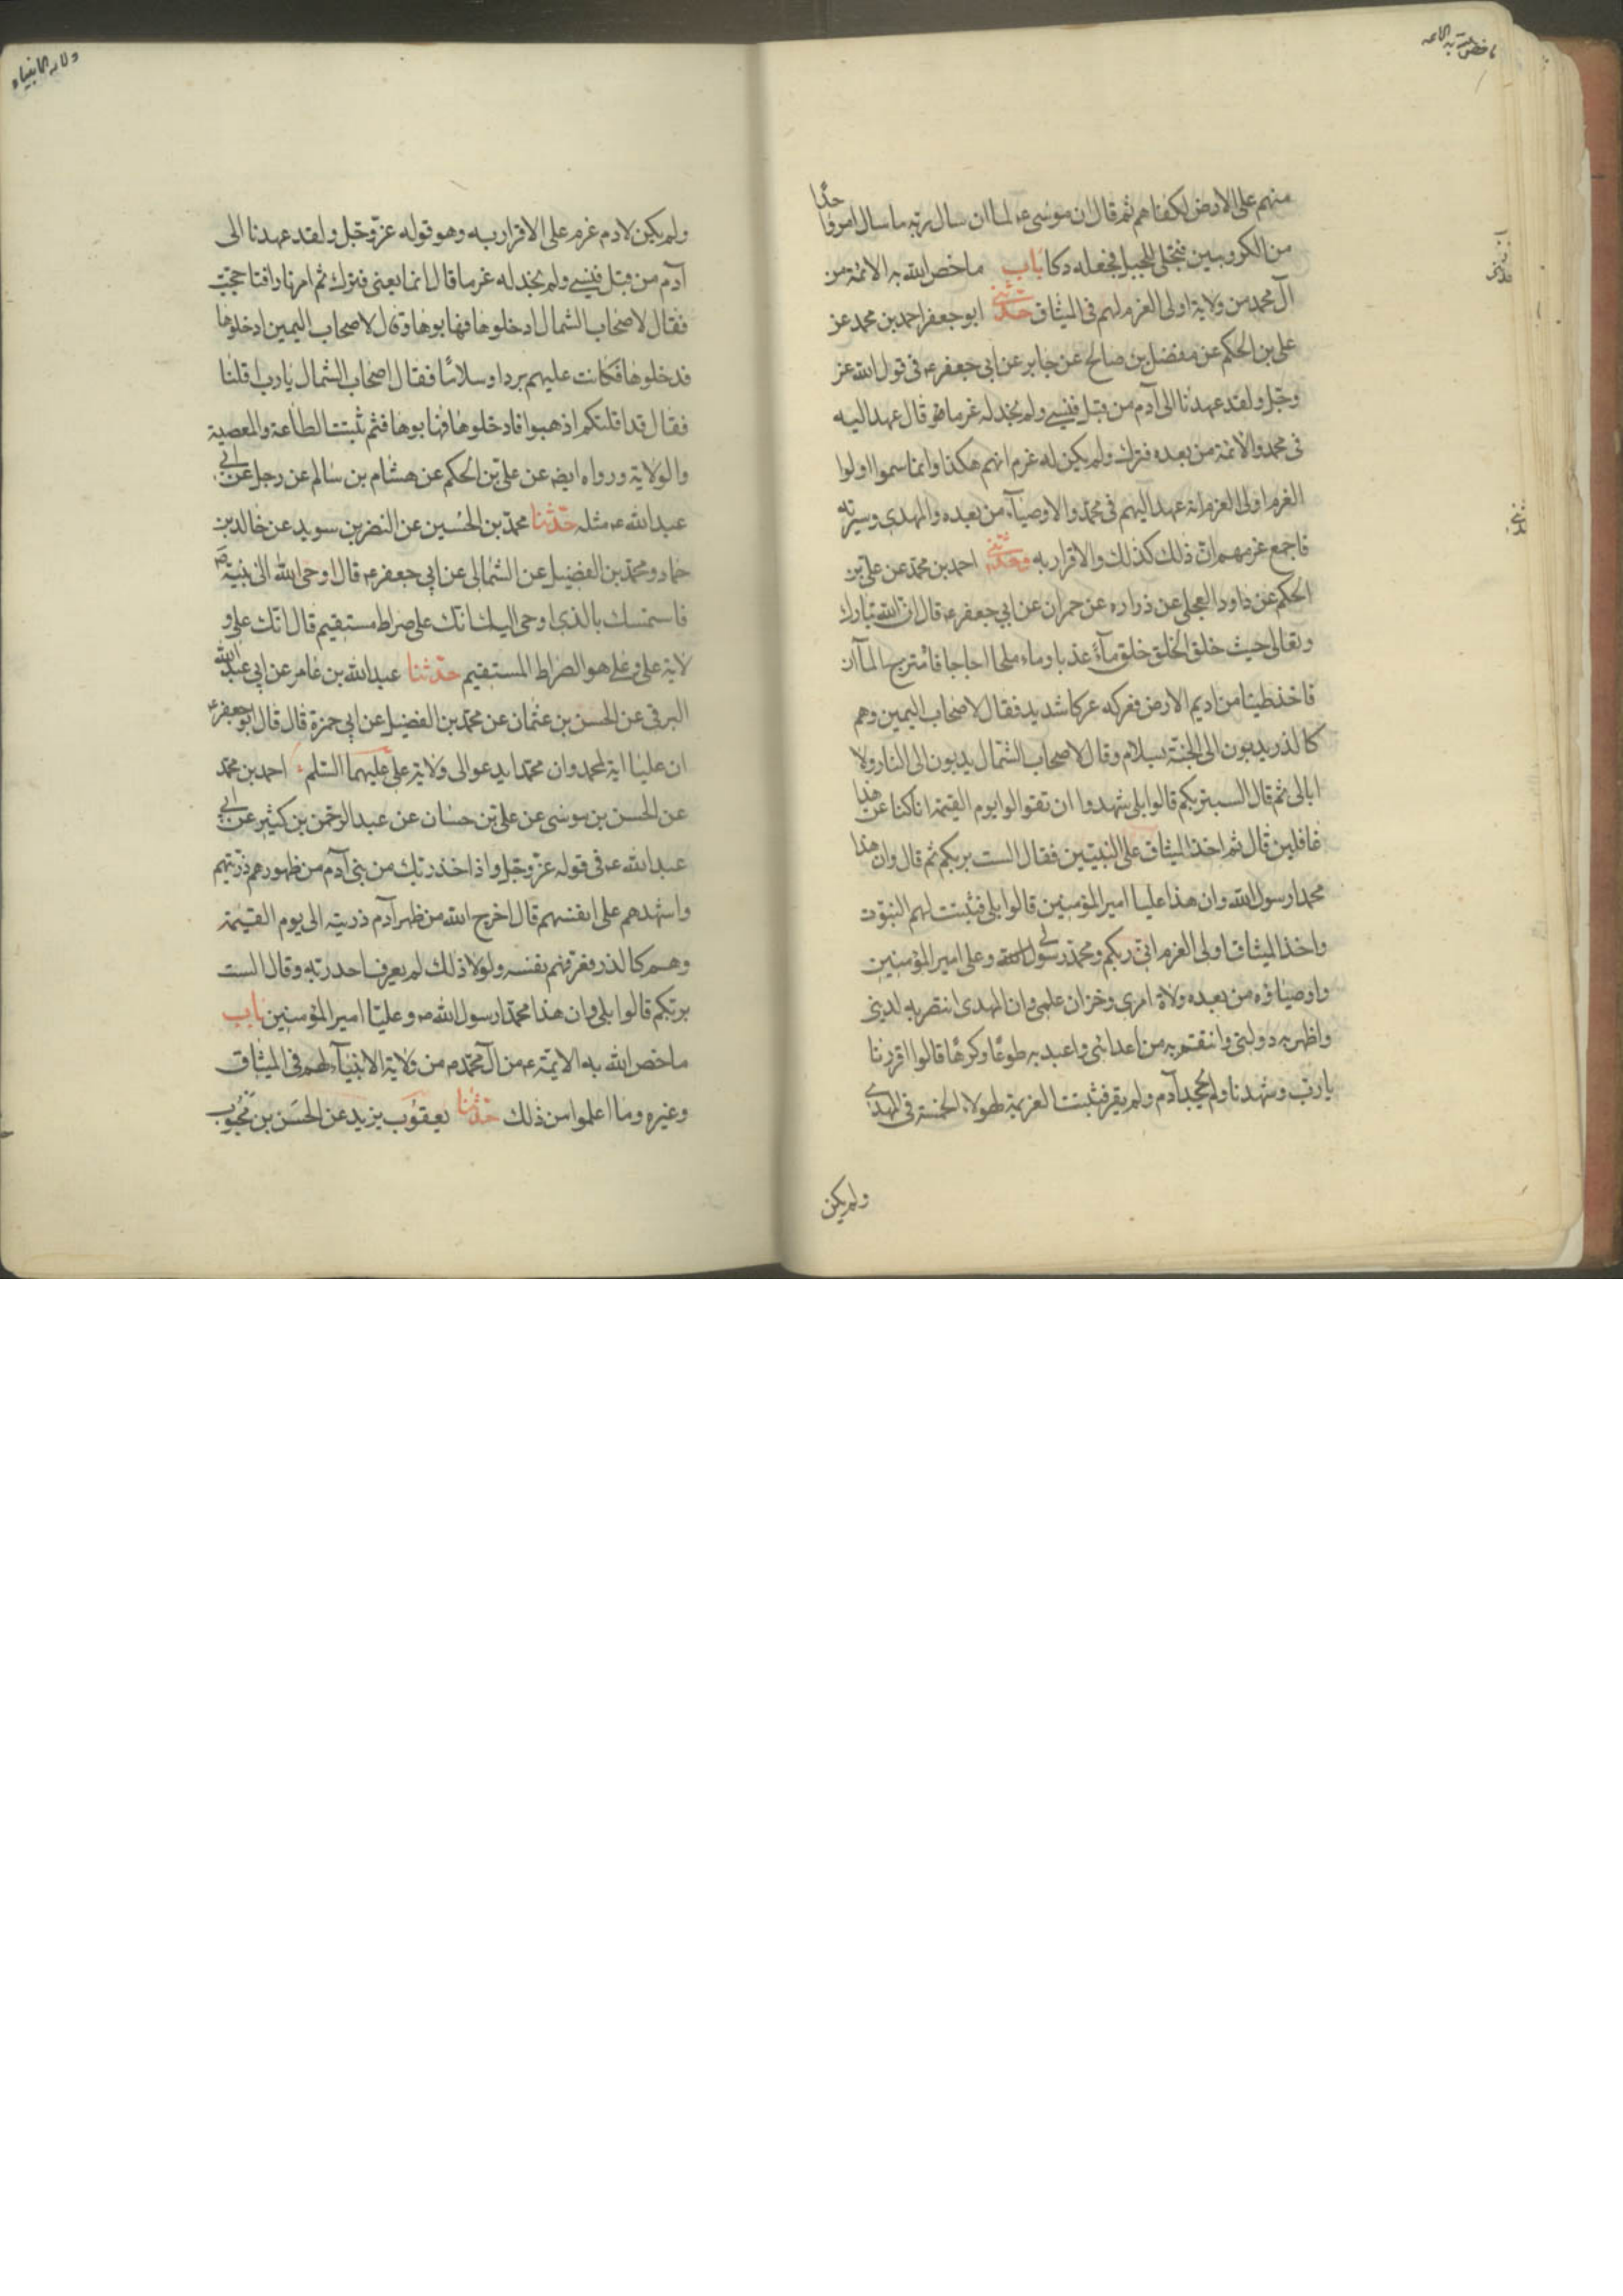 ما خص الله به الائمه
منهم على الارض لكفاهم ثم قال ان موسى ع لما ان سال ربه ما سال امر واحدا
من الكروبيين فتجلى للجبل فجعله دكا باب ما خص الله به الائمة من
آل محمد من ولاية اولى العزم لهم فى الميثاق حدثنى ابو جعفر احمد بن محمد عن
على بن الحكم عن مفضل بن صالح عن جابر عن ابى جعفر ع فى قول الله عز
وجل ولقد عهدنا الى آدم من قبل فنسى ولم نجد له عزما قال عهد اليه
فى محمد والائمة من بعده فترك ولم يكن له عزم انهم هكذا وانما سموا اولوا
العزم اولى العزم انه عهد اليهم فى محمد والاوصياء من بعده والمهدى وسيرته
فاجمع عزمهم ان ذلك كذلك والاقرار به وحدثنى احمد بن محمد عن على بن
الحكم عن داود العجلى عن زراره عن حمران عن ابى جعفر ع قال ان الله تبارك
وتعالى حيث خلق الخلق خلق ماء عذبا وماء ملحا اجاجا فامتزج الماآن
فاخذ طينا من اديم الارض فعركه عركا شديد فقال لاصحاب اليمين وهم
كالذر يدبون الى الجنة بسلام وقال لاصحاب الشمال يدبون الى النار ولا
ابالى ثم قال الست بربكم قالوا بلى شهدوا ان تقولوا يوم القيمة انا كنا عن هذا
غافلين قال ثم اخذ الميثاق على النبيين فقال الست بربكم ثم قال وان هذا
محمدا رسول الله وان هذا عليا امير المؤمنين قالوا بلى فثبتت لهم النبوت
واخذ الميثاق اولى العزم انى ربكم ومحمد رسولى وعلى امير المؤمنين
واوصياؤه من بعده ولاة امرى وخزان علمى وان المهدى انتصر به لدينى
واظهر به دولتى وانتقم به من اعدائى واعبد به طوعا وكرها قالوا اقررنا
يا رب وشهدنا ولم يجحد آدم ولم يقر فثبتت العزيمة لهولاء الخمسة فى المهدى
ولم يكن
ولاية الانبياء
ولم يكن لادم عزم على الاقرار به وهو قوله عز وجل ولقد عهدنا الى
آدم من قبل فنسى ولم نجد له عزما قال انما يعنى فترك ثم امر نارا فتاججت
فقال لاصحاب الشمال ادخلوها فهابوها وقال لاصحاب اليمين ادخلوها
فدخلوها فكانت عليهم بردا وسلاما فقال اصحاب الشمال يا رب اقلنا
فقال قد اقلتكم اذهبوا فادخلوها فهابوها فثم ثبتت الطاعة والمعصية
والولاية ورواه ايض عن على بن الحكم عن هشام بن سالم عن رجل عن ابى
عبد الله ع مثله حدثنا محمد بن الحسين عن النضر بن سويد عن خالد بن
حماد ومحمد بن الفضيل عن الثمالى عن ابى جعفر ع قال اوحى الله الى نبيه ص
فاستمسك بالذى اوحى اليك انك على صراط مستقيم قال انك على و
لاية على وعلى هو الصراط المستقيم حدثنا عبد الله بن عامر عن ابى عبد الله
البرقى عن الحسن بن عثمان عن محمد بن الفضيل عن ابى حمزة قال قال ابو جعفر ع
ان عليا اية لمحمد وان محمدا يدعو الى ولاية على عليهما السلم احمد بن محمد
عن الحسن بن موسى عن على بن حسان عن عبد الرحمن بن كثير عن ابى
عبد الله ع فى قوله عز وجل واذ اخذ ربك من بنى آدم من ظهورهم ذريتهم
واشهدهم على انفسهم قال اخرج الله من ظهر آدم ذريته الى يوم القيمة
وهم كالذر فعرفهم بنفسه ولولا ذلك لم يعرف احد ربه وقال الست
بربكم قالوا بلى وان هذا محمدا رسول الله ص وعليا امير المؤمنين باب
ما خص الله به الايمة ع من آل محمد ص من ولاية الانبياء لهم فى الميثاق
وغيره وما اعلموا من ذلك حدثنا يعقوب بن يزيد عن الحسن بن محبوب